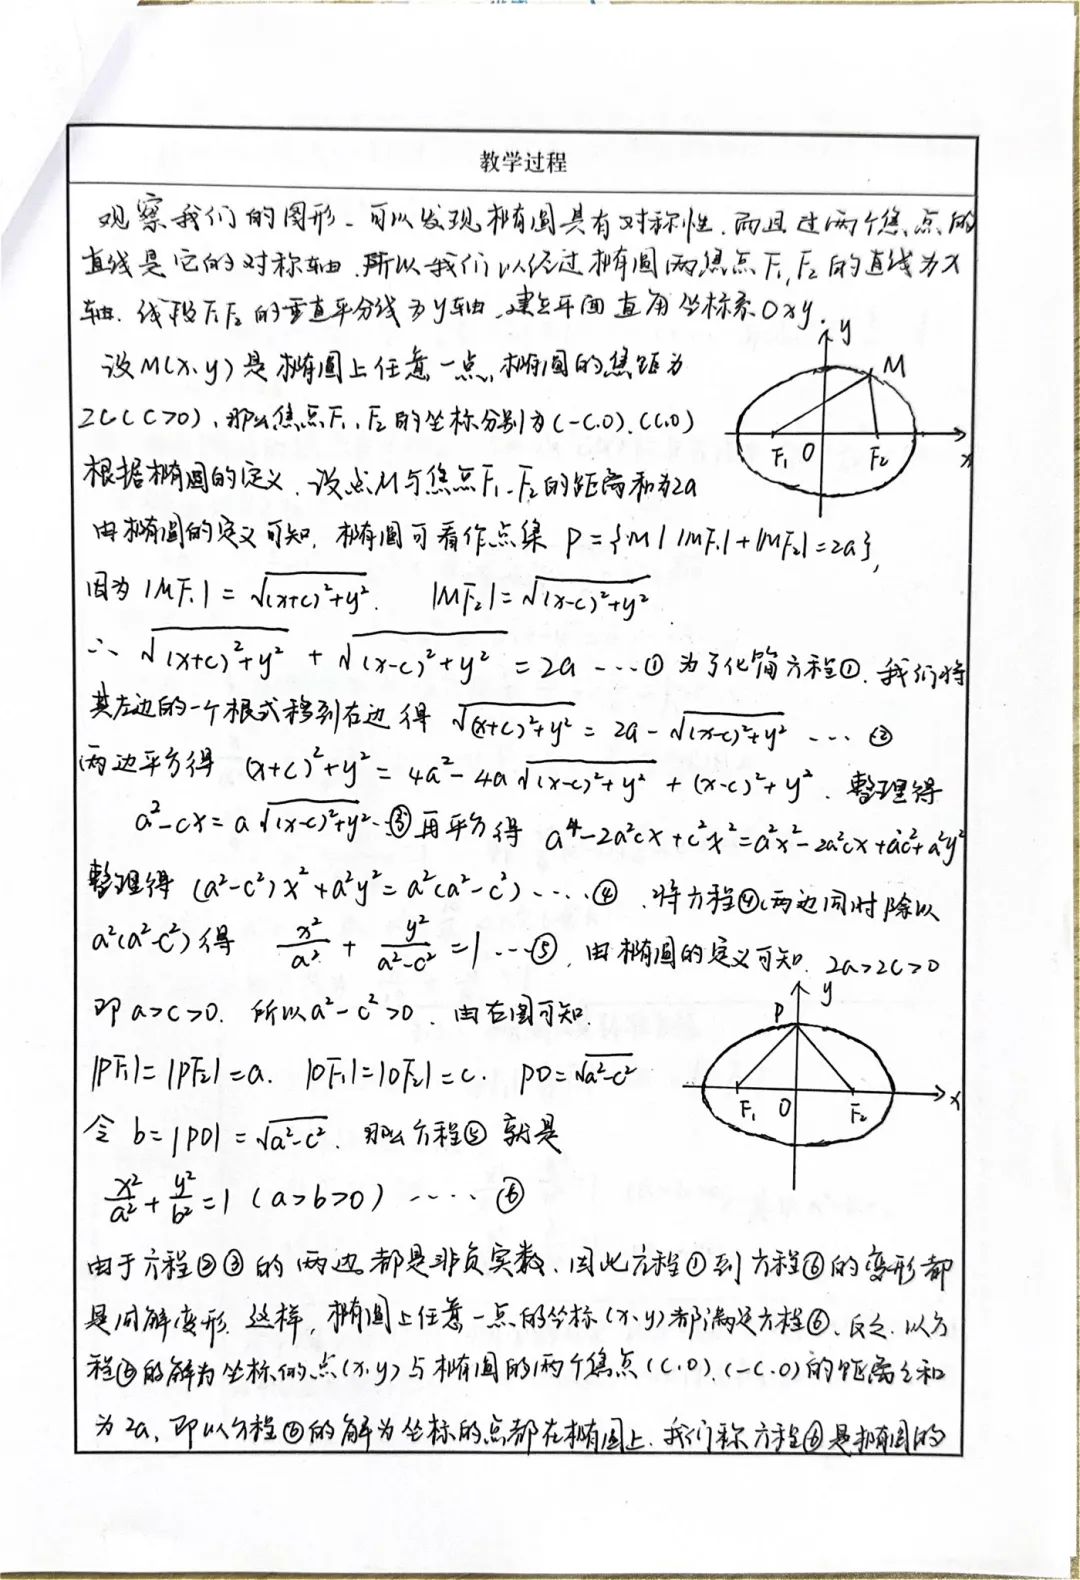 教学过程
观察我们的图形、可以发现椭圆具有对称性,而且过两个焦点的
直线是它的对称轴,所以我们以经过椭圆两焦点F₁,F₂的直线为x
轴,线段F₁F₂的垂直平分线为y轴,建立平面直角坐标系Oxy.
设M(x,y)是椭圆上任意一点,椭圆的焦距为
2c(c>0),那么焦点F₁,F₂的坐标分别为(-c,0),(c,0)
根据椭圆的定义,设点M与焦点F₁、F₂的距离和为2a
y
M
F₁ O F₂ x
由椭圆的定义可知,椭圆可看作点集 P={M||MF₁|+|MF₂|=2a},
因为|MF₁|=√((x+c)²+y²), |MF₂|=√((x-c)²+y²)
∴ √((x+c)²+y²) + √((x-c)²+y²) = 2a ……① 为了化简方程①,我们将
其左边的一个根式移到右边 得 √((x+c)²+y²) = 2a-√((x-c)²+y²) ……②
两边平方得 (x+c)²+y² = 4a²-4a√((x-c)²+y²) + (x-c)²+y², 整理得
a²-cx = a√((x-c)²+y²)…③再平方得 a⁴-2a²cx+c²x²=a²x²-2a²cx+a²c²+a²y²
整理得 (a²-c²)x²+a²y²=a²(a²-c²)……④,将方程④两边同时除以
a²(a²-c²)得 x²/a² + y²/(a²-c²) = 1 …⑤,由椭圆的定义可知,2a>2c>0
即 a>c>0, 所以a²-c²>0,由右图可知
|PF₁|=|PF₂|=a, |OF₁|=|OF₂|=c, PO=√(a²-c²)
令 b=|PO|=√(a²-c²), 那么方程⑤就是
x²/a²+y²/b²=1 (a>b>0) ……⑥
y
P
F₁ O F₂ x
由于方程②③的两边都是非负实数,因此方程①到方程⑥的变形都
是同解变形,这样,椭圆上任意一点的坐标(x,y)都满足方程⑥,反之,以方
程⑥的解为坐标的点(x,y)与椭圆的两个焦点(c,0),(-c,0)的距离之和
为2a,即以方程⑥的解为坐标的点都在椭圆上,我们称方程⑥是椭圆的